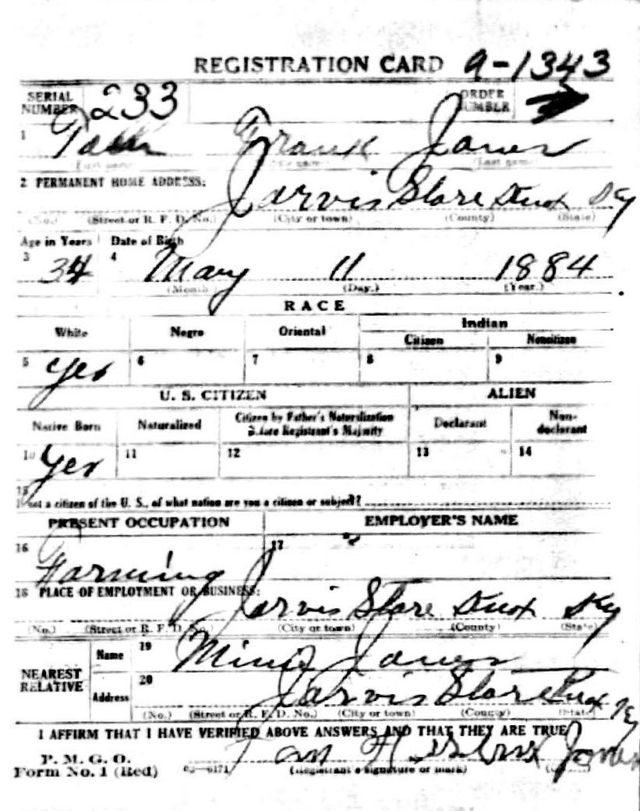 REGISTRATION CARD 9-1343
SERIAL NUMBER 233 ORDER NUMBER
1 Frank Jones
2 PERMANENT HOME ADDRESS: Jarvis Store Knox Ky
(No.) (Street or R. F. D. No.) (City or town) (County) (State)
Age in Years Date of Birth
3 34 4 May 11 1884
(Month) (Day.) (Year.)
RACE
White Negro Oriental Indian
Citizen Noncitizen
5 Yes 6 7 8 9
U. S. CITIZEN ALIEN
Native Born Naturalized Citizen by Father's Naturalization Before Registrant's Majority Declarant Non-declarant
10 Yes 11 12 13 14
15
If not a citizen of the U. S., of what nation are you a citizen or subject?
PRESENT OCCUPATION EMPLOYER'S NAME
16 Farming 17
18 PLACE OF EMPLOYMENT OR BUSINESS: Jarvis Store Knox Ky
(No.) (Street or R. F. D. No.) (City or town) (County) (State)
NEAREST RELATIVE Name 19 Jones
Address 20 Jarvis Store Knox Ky
(No.) (Street or R. F. D. No.) (City or town) (County) (State)
I AFFIRM THAT I HAVE VERIFIED ABOVE ANSWERS AND THAT THEY ARE TRUE
P. M. G. O.
Form No. 1 (Red) Jones
(Registrant's signature or mark)